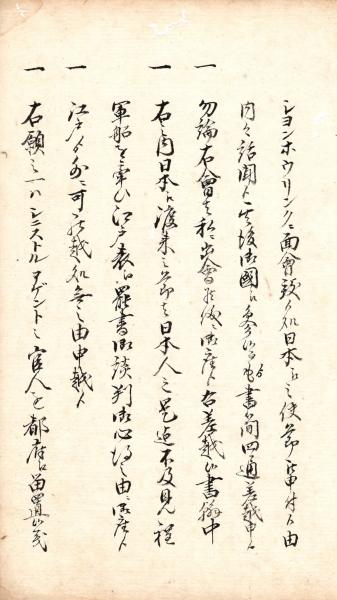 シヨンホウリンクニ面會致候処日本江之使節被申付候由
内々話聞候其後御國江参候ゟも書簡四通差越申候
一 勿論右會は私ニ出會候儀ニ御座候右差越候書翰中
一 右之内日本江渡来之節は日本人之是迄不及見程
軍船を率ひ江戸表江罷書御談判御心得之由ニ御座候
一 江戸ゟ外ニ可罷越処無之由申越候
一 右願之一ハミニストルアゲント之官人を都府江留置候儀